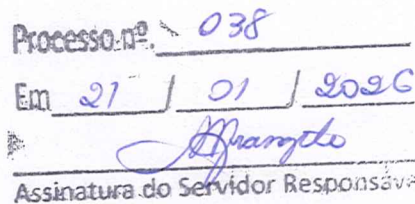 Processo nº. 038
Em 21 / 01 / 2026
Assinatura do Servidor Responsáve